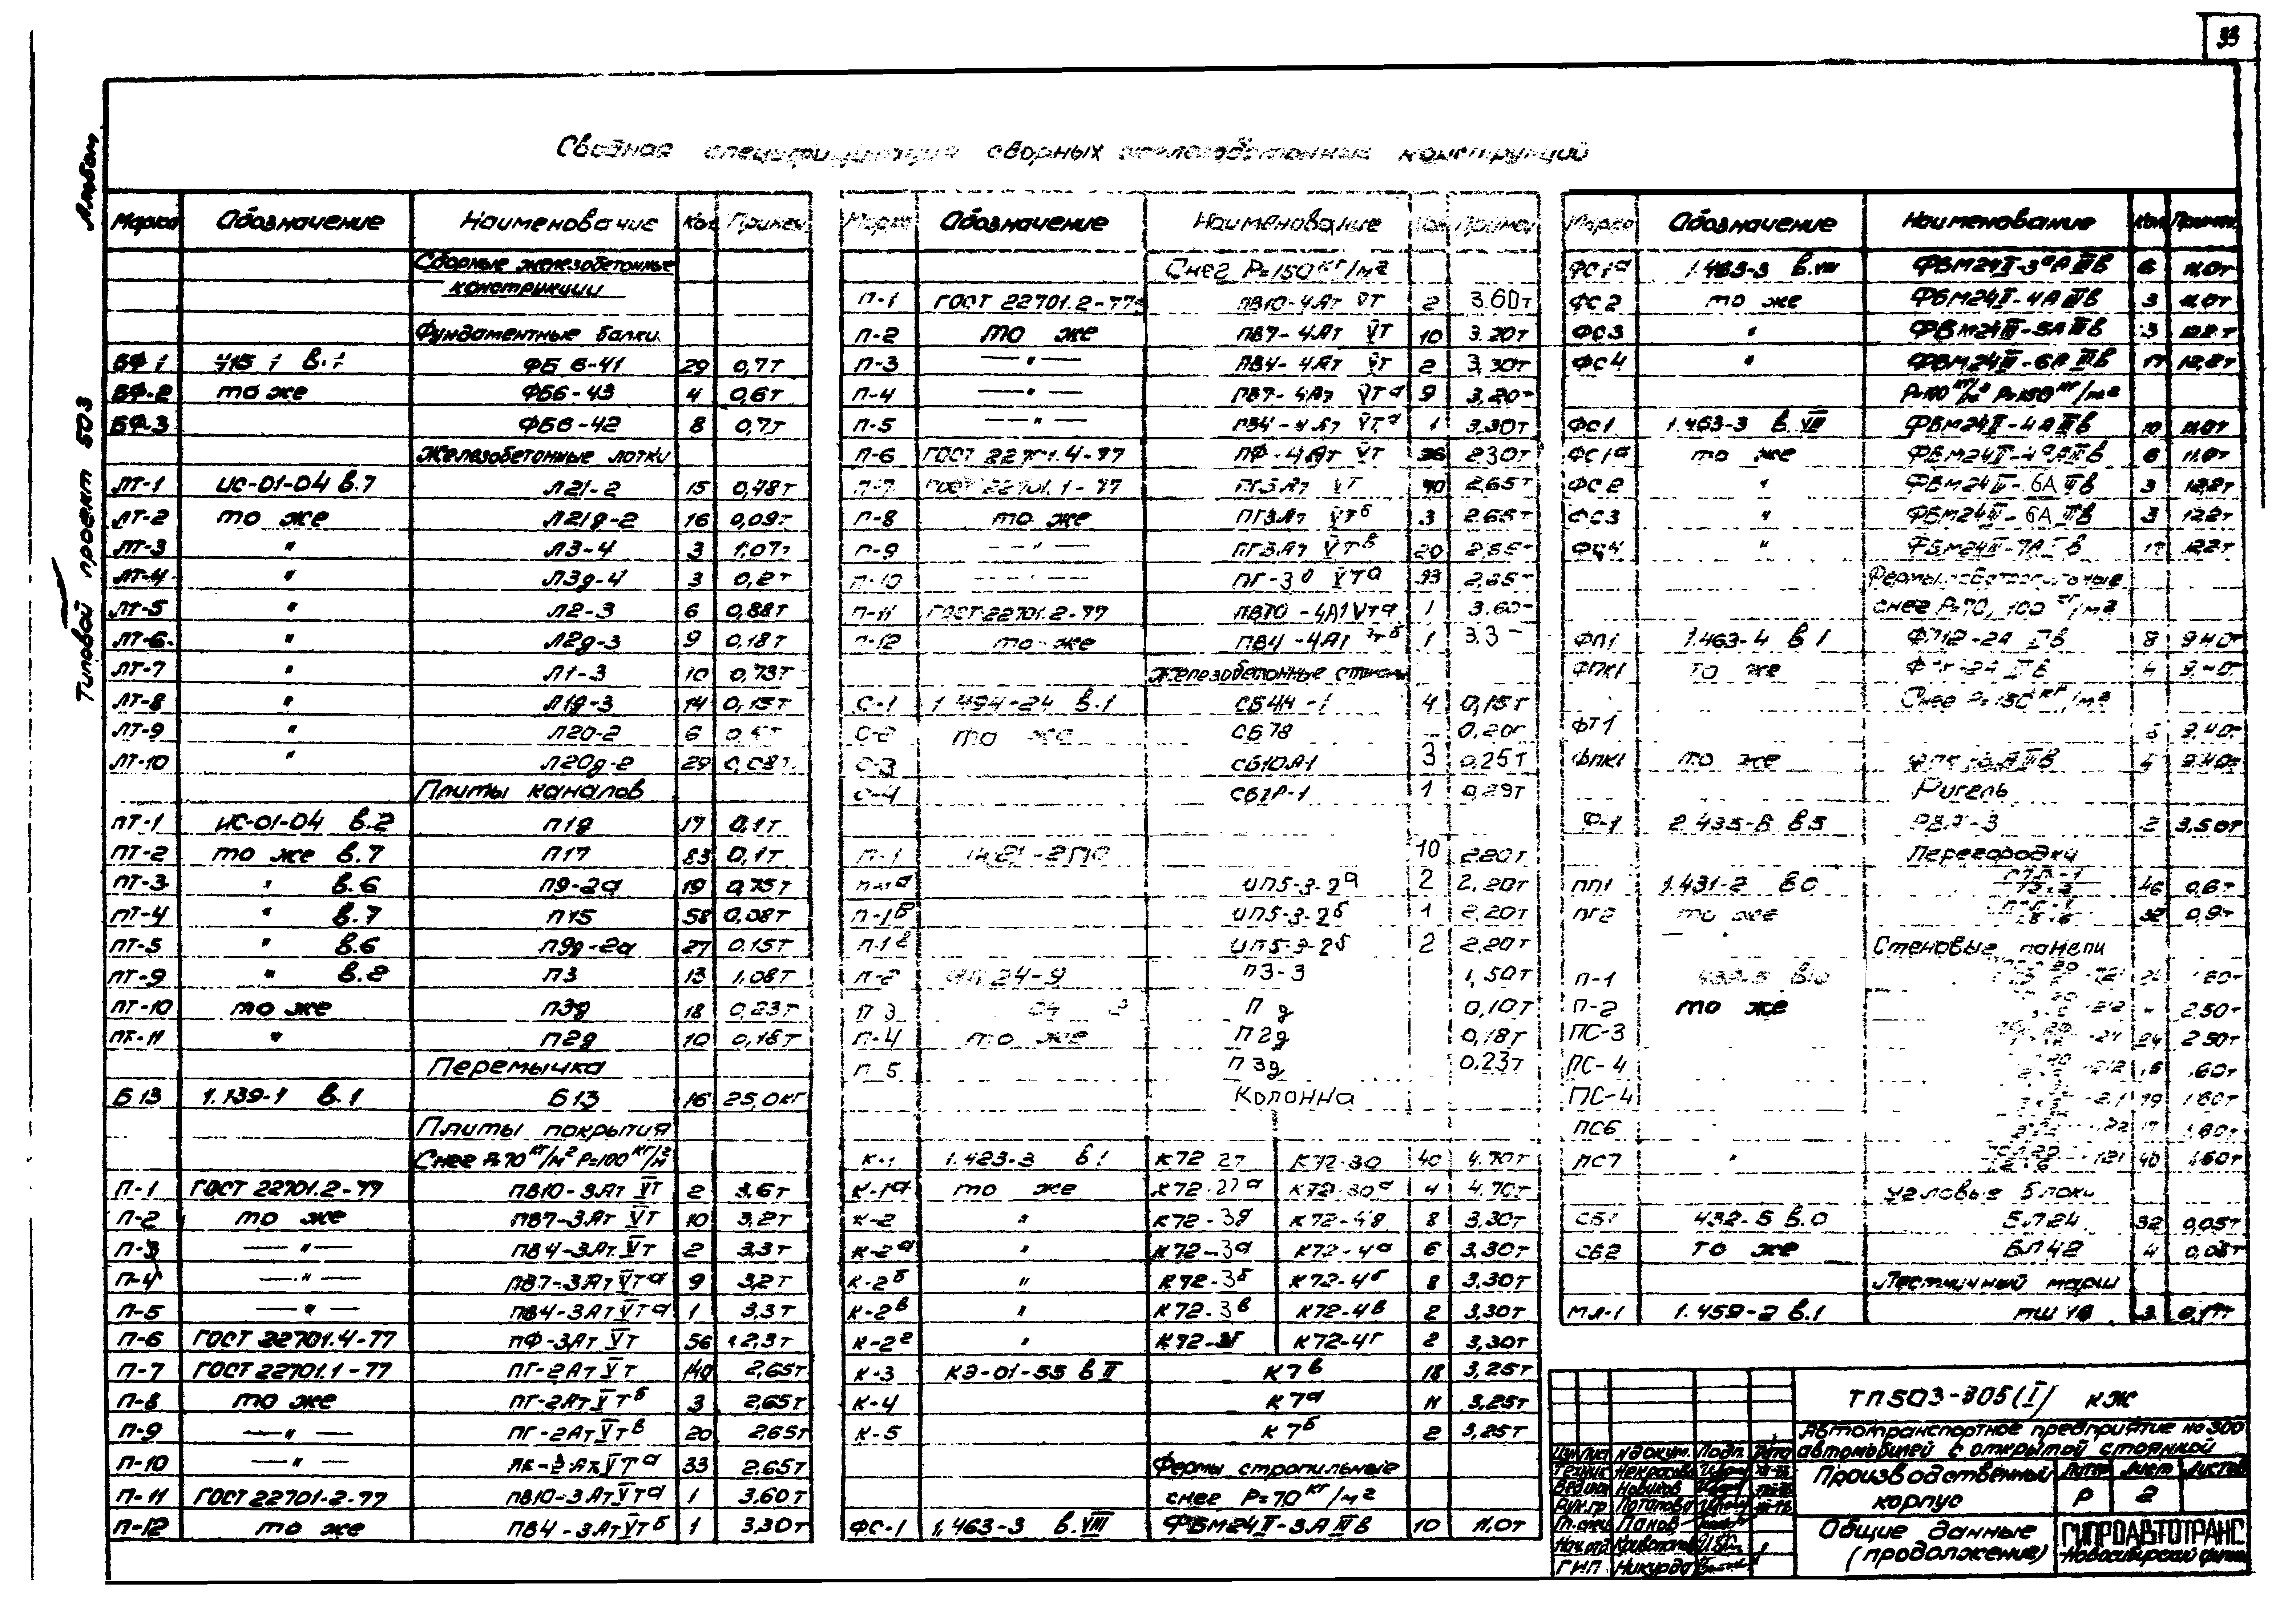 33
Альбом
Типовой проект 503
Сводная спецификация сборных железобетонных конструкций
Марка Обозначение Наименование Кол Примеч
Сборные железобетонные
конструкции
Фундаментные балки.
БФ-1 415-1 в.1 ФБ 6-41 29 0,7т
БФ-2 то же ФБ6-43 4 0,6т
БФ-3 ФБ6-42 8 0,7т
Железобетонные лотки
ЛТ-1 ИС-01-04 в.7 Л21-2 15 0,48т
ЛТ-2 то же Л21д-2 16 0,09т
ЛТ-3 " Л3-4 3 1,07т
ЛТ-4 " Л3д-4 3 0,2т
ЛТ-5 " Л2-3 6 0,88т
ЛТ-6 " Л2д-3 9 0,18т
ЛТ-7 " Л1-3 10 0,73т
ЛТ-8 " Л1д-3 14 0,15т
ЛТ-9 " Л20-2 6
ЛТ-10 " Л20д-2 29 0,08т
Плиты каналов
ПТ-1 ИС-01-04 в.2 П1д 17 0,1т
ПТ-2 то же в.7 П17 83 0,1т
ПТ-3 " в.6 П9-2а 19 0,75т
ПТ-4 " в.7 П15 58 0,08т
ПТ-5 " в.6 П9д-2а 27 0,15т
ПТ-9 " в.2 П3 13 1,08т
ПТ-10 то же П3д 18 0,23т
ПТ-11 " П2д 10 0,18т
Перемычка
Б13 1.139-1 в.1 Б13 16 25,0кг
Плиты покрытия
Снег Р=70 кг/м² Р=100 кг/м²
П-1 ГОСТ 22701.2-77 ПВ10-3Ат VТ 2 3,6т
П-2 то же ПВ7-3Ат VТ 10 3,2т
П-3 — " — ПВ4-3Ат VТ 2 3,3т
П-4 — " — ПВ7-3Ат VТа 9 3,2т
П-5 — " — ПВ4-3Ат VТа 1 3,3т
П-6 ГОСТ 22701.4-77 ПФ-3Ат VТ 56 2,3т
П-7 ГОСТ 22701.1-77 ПГ-2Ат VТ 140 2,65т
П-8 то же ПГ-2Ат VТб 3 2,65т
П-9 — " — ПГ-2Ат VТв 20 2,65т
П-10 — " — VТа 33 2,65т
П-11 ГОСТ 22701-2-77 ПВ10-3Ат VТа 1 3,60т
П-12 то же ПВ4-3Ат VТб 1 3,30т
Марка Обозначение Наименование Кол Примеч
Снег Р=150 кг/м²
П-1 ГОСТ 22701.2-77 ПВ10-4Ат VТ 2 3.60т
П-2 то же ПВ7-4Ат VТ 10 3.20т
П-3 — " — ПВ4-4Ат VТ 2 3,30т
П-4 — " — ПВ7-4Ат VТа 9 3,20т
П-5 — " — ПВ4-4Ат VТа 1 3,30т
П-6 ГОСТ 22701.4-77 ПФ-4Ат VТ 2.30т
П-7 ГОСТ 22701.1-77 ПГ3Ат VТ 2,65т
П-8 то же ПГ3Ат VТб 3 2,65т
П-9 — " — ПГ3Ат VТв 20 2,65т
П-10 — " — VТа 33 2,65т
П-11 ГОСТ 22701.2-77 ПВ10-4Ат VТа 1 3.60т
П-12 то же ПВ4-4Ат 1 3.3
Железобетонные стаканы
С-1 1.494-24 в.1 СБ4Н-1 4 0,15т
С-2 то же СБ7В 0,20т
С-3 СБ10А1 3 0,25т
С-4 1 0,29т
П-1 10 2,20т
ИП5-3-2а 2 2,20т
П-1б ИП5-3-2б 1 2,20т
П-1в ИП5-3-2б 2 2,20т
П-2 П3-3 1,50т
П 3 П д 0,10т
П-4 то же П2д 0,18т
П 5 П 3д 0,23т
Колонна
К-1 1.423-3 в.1 К72 27 К72-30 40 4.70т
К-1а то же К72-27а К72-30а 4 4.70т
К-2 " К72-3д К72-4д 8 3,30т
К-2а " К72-3а К72-4а 6 3,30т
К-2б " К72-3б К72-4б 8 3,30т
К-2в " К72-3в К72-4в 2 3,30т
К-2г " К72-3г К72-4г 2 3,30т
К-3 КЭ-01-55 в II К7в 18 3,25т
К-4 К7а 11 3,25т
К-5 К7б 2 3,25т
Фермы стропильные
снег Р=70 кг/м²
ФС-1 1.463-3 в.VIII ФБМ24II-3АIIIв 10 11,0т
Марка Обозначение Наименование Кол Примеч
ФС1а 1.463-3 в.VIII ФБМ24II-3аАIIIв 6 11,0т
ФС2 то же ФБМ24II-4АIIIв 3 11,0т
ФС3 " ФБМ24III-5АIIIв 3 12.2т
ФС4 " ФБМ24III-6АIIIв 17 12,2т
Р=100 кг/м² Р=150 кг/м²
ФС1 1.463-3 в.VIII ФБМ24II-4АIIIв 10 11,0т
ФС1а то же ФБМ24II-4аАIIIв 6 11.0т
ФС2 " ФБМ24III-6АIIIв 3 12,2т
ФС3 " ФБМ24III-6АIIIв 3 12.2т
ФС4 " 17 12,2т
Фермы подстропильные
снег Р=70, 100 кг/м²
ФП1 1.463-4 в 1 ФП12-2А 8 9.40т
ФПК1 то же 4 9.40т
Снег Р=150 кг/м²
9.40т
ФПК1 то же 9.40т
Ригель
2 3,50т
Перегородки
ПП1 1.431-2 в0 46 0,6т
ПГ2 то же 32 0,9т
Стеновые панели
П-1 24
П-2 то же 2.50т
ПС-3 24 2.50т
ПС-4
ПС-4 19 1.60т
ПС6 17 1.60т
ПС7 " 40 1.60т
Угловые блоки
СБ1 432-5 в.0 БЛ24 32 0,05т
СБ2 то же БЛ42 4 0,08т
Лестничный марш
МЛ-1 1.459-2 в.1 3
ТП503-305(I) КЖ
Автотранспортное предприятие на 300
автомобилей с открытой стоянкой
Изм Лист N докум. Подп. Дата
Техник Некрасова
Вед.инж Новиков
Рук.гр. Потапова
Гл.спец Панов
Нач.отд
ГИП Никурда
Производственный
корпус
Литер Лист Листов
Р 2
Общие данные
(продолжение)
ГИПРОАВТОТРАНС
Новосибирский филиал